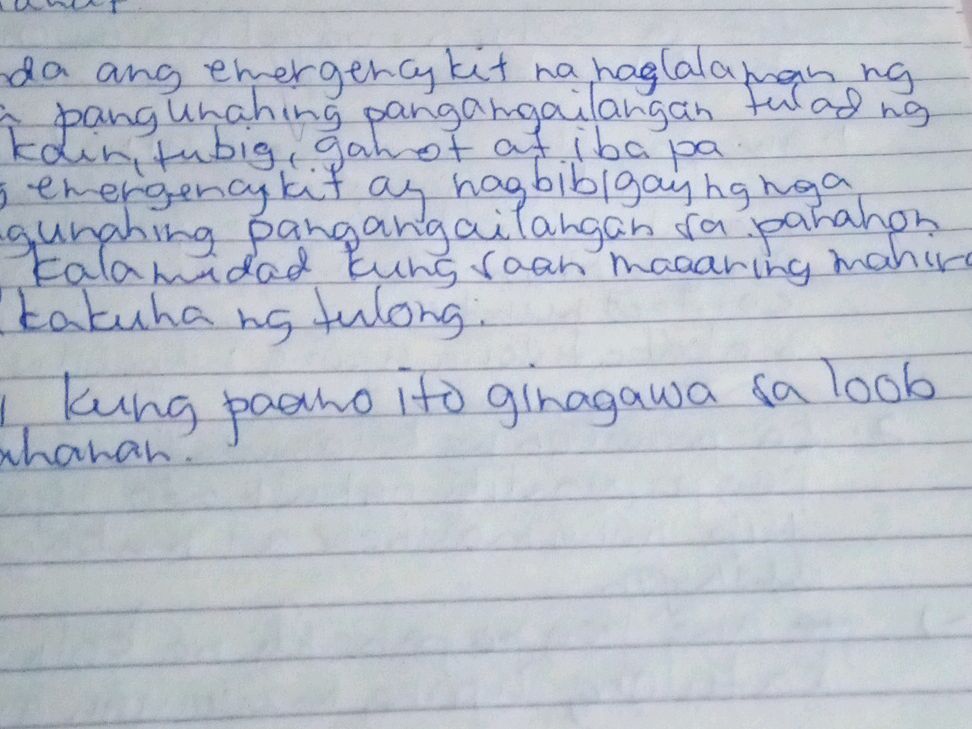 da ang emergency kit na naglalaman ng
pangunahing pangangailangan tulad ng
kain, tubig, gamot at iba pa
emergency kit ay nagbibigay ng mga
gunahing pangangailangan sa panahon
kalamidad kung saan maaaring mahira
kakuha ng tulong.
kung paano ito ginagawa sa loob
ahanan.